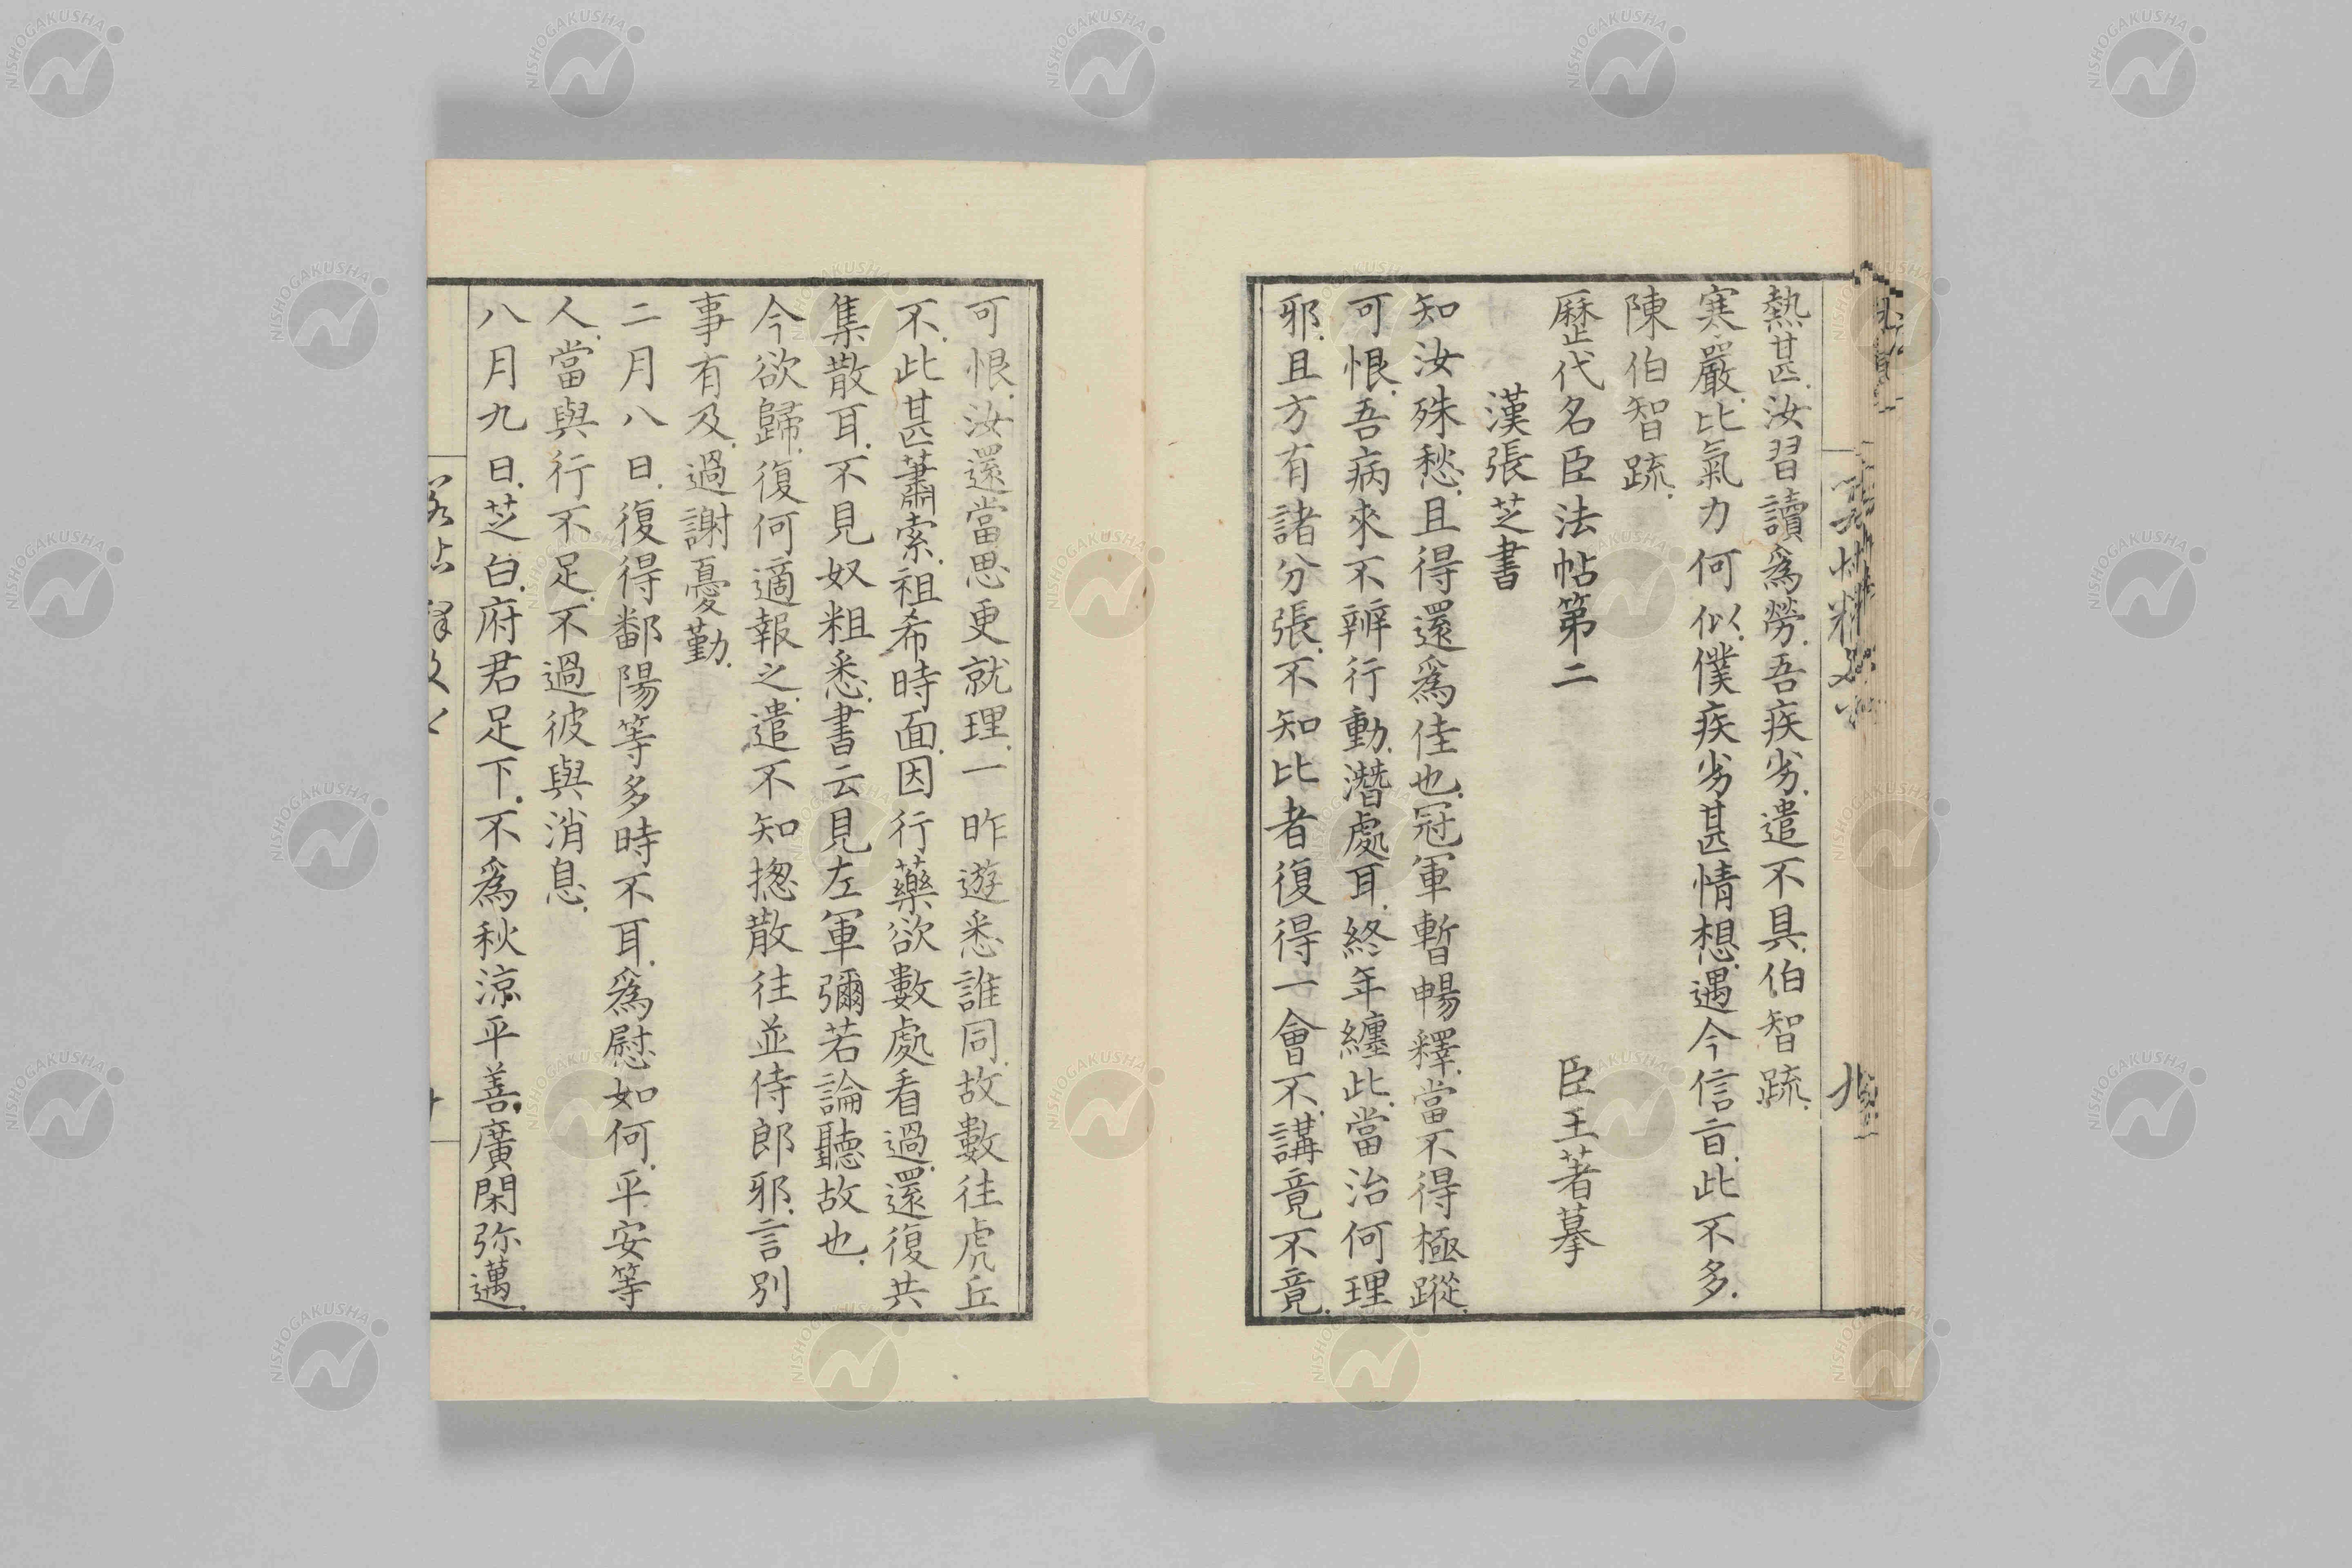 熱甚汝習讀爲勞吾疾劣遣不具伯智疏
寒嚴比氣力何似僕疾劣甚情想遇今信旨此不多
陳伯智疏
歷代名臣法帖第二 臣王著摹
漢張芝書
知汝殊愁且得還爲佳也冠軍暫暢釋當不得極蹤
可恨吾病來不辨行動潛處耳終年纏此當治何理
邪且方有諸分張不知比者復得一會不講竟不竟
可恨汝還當思更就理一昨遊悉誰同故數往虎丘
不此甚蕭索祖希時面因行藥欲數處看過還復共
集散耳不見奴粗悉書云見左軍彌若論聽故也
今欲歸復何適報之遣不知揔散往並侍郎邪言別
事有及過謝憂勤
二月八日復得鄱陽等多時不耳爲慰如何平安等
人當與行不足不過彼與消息
八月九日芝白府君足下不爲秋涼平善廣閑弥邁
NISHOGAKUSHA